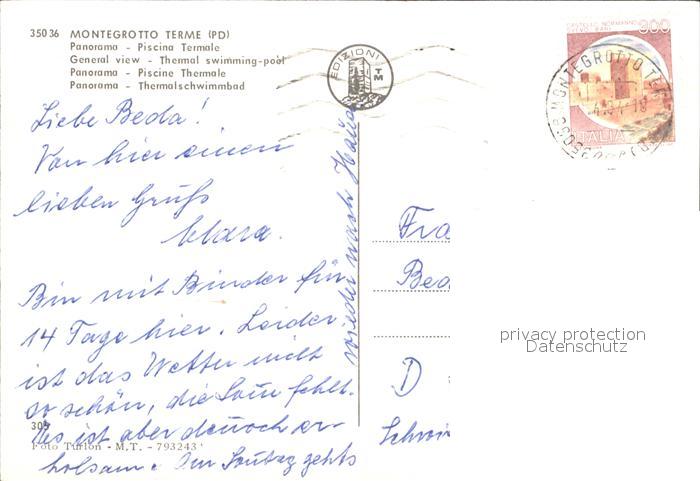 35036 MONTEGROTTO TERME (PD)
Panorama - Piscina Termale
General view - Thermal swimming-pool
Panorama - Piscine Thermale
Panorama - Thermalschwimmbad
EDIZIONI
TM
300
ITALIA
MONTEGROTTO TER
Liebe Beda!
Von hier einen
lieben Gruß
Clara.
Bin mit Binder für
14 Tage hier. Leider
ist das Wetter nicht
so schön, die Sonne fehlt.
Es ist aber dennoch er-
holsam. Am Sontag gehts
wieder nach Hause
305
Foto Turlon - M.T. - 793243
Fra
Bea
D
Schwei
privacy protection
Datenschutz